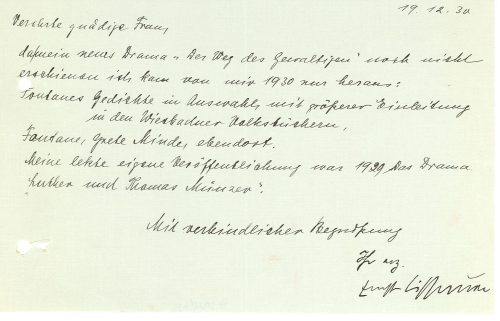 19.12.30
Verehrte gnädige Frau,
da mein neues Drama „Der Weg des Gewaltigen" noch nicht
erschienen ist, kam von mir 1930 nur heraus:
Fontanes Gedichte in Auswahl, mit größerer Einleitung
in den Wiesbadner Volksbüchern,
Fontane, Grete Minde, ebendort.
Meine letzte eigene Veröffentlichung war 1929 Das Drama
„Luther und Thomas Münzer".
Mit verbindlicher Begrüßung
Ihr erg.
Ernst Lissauer